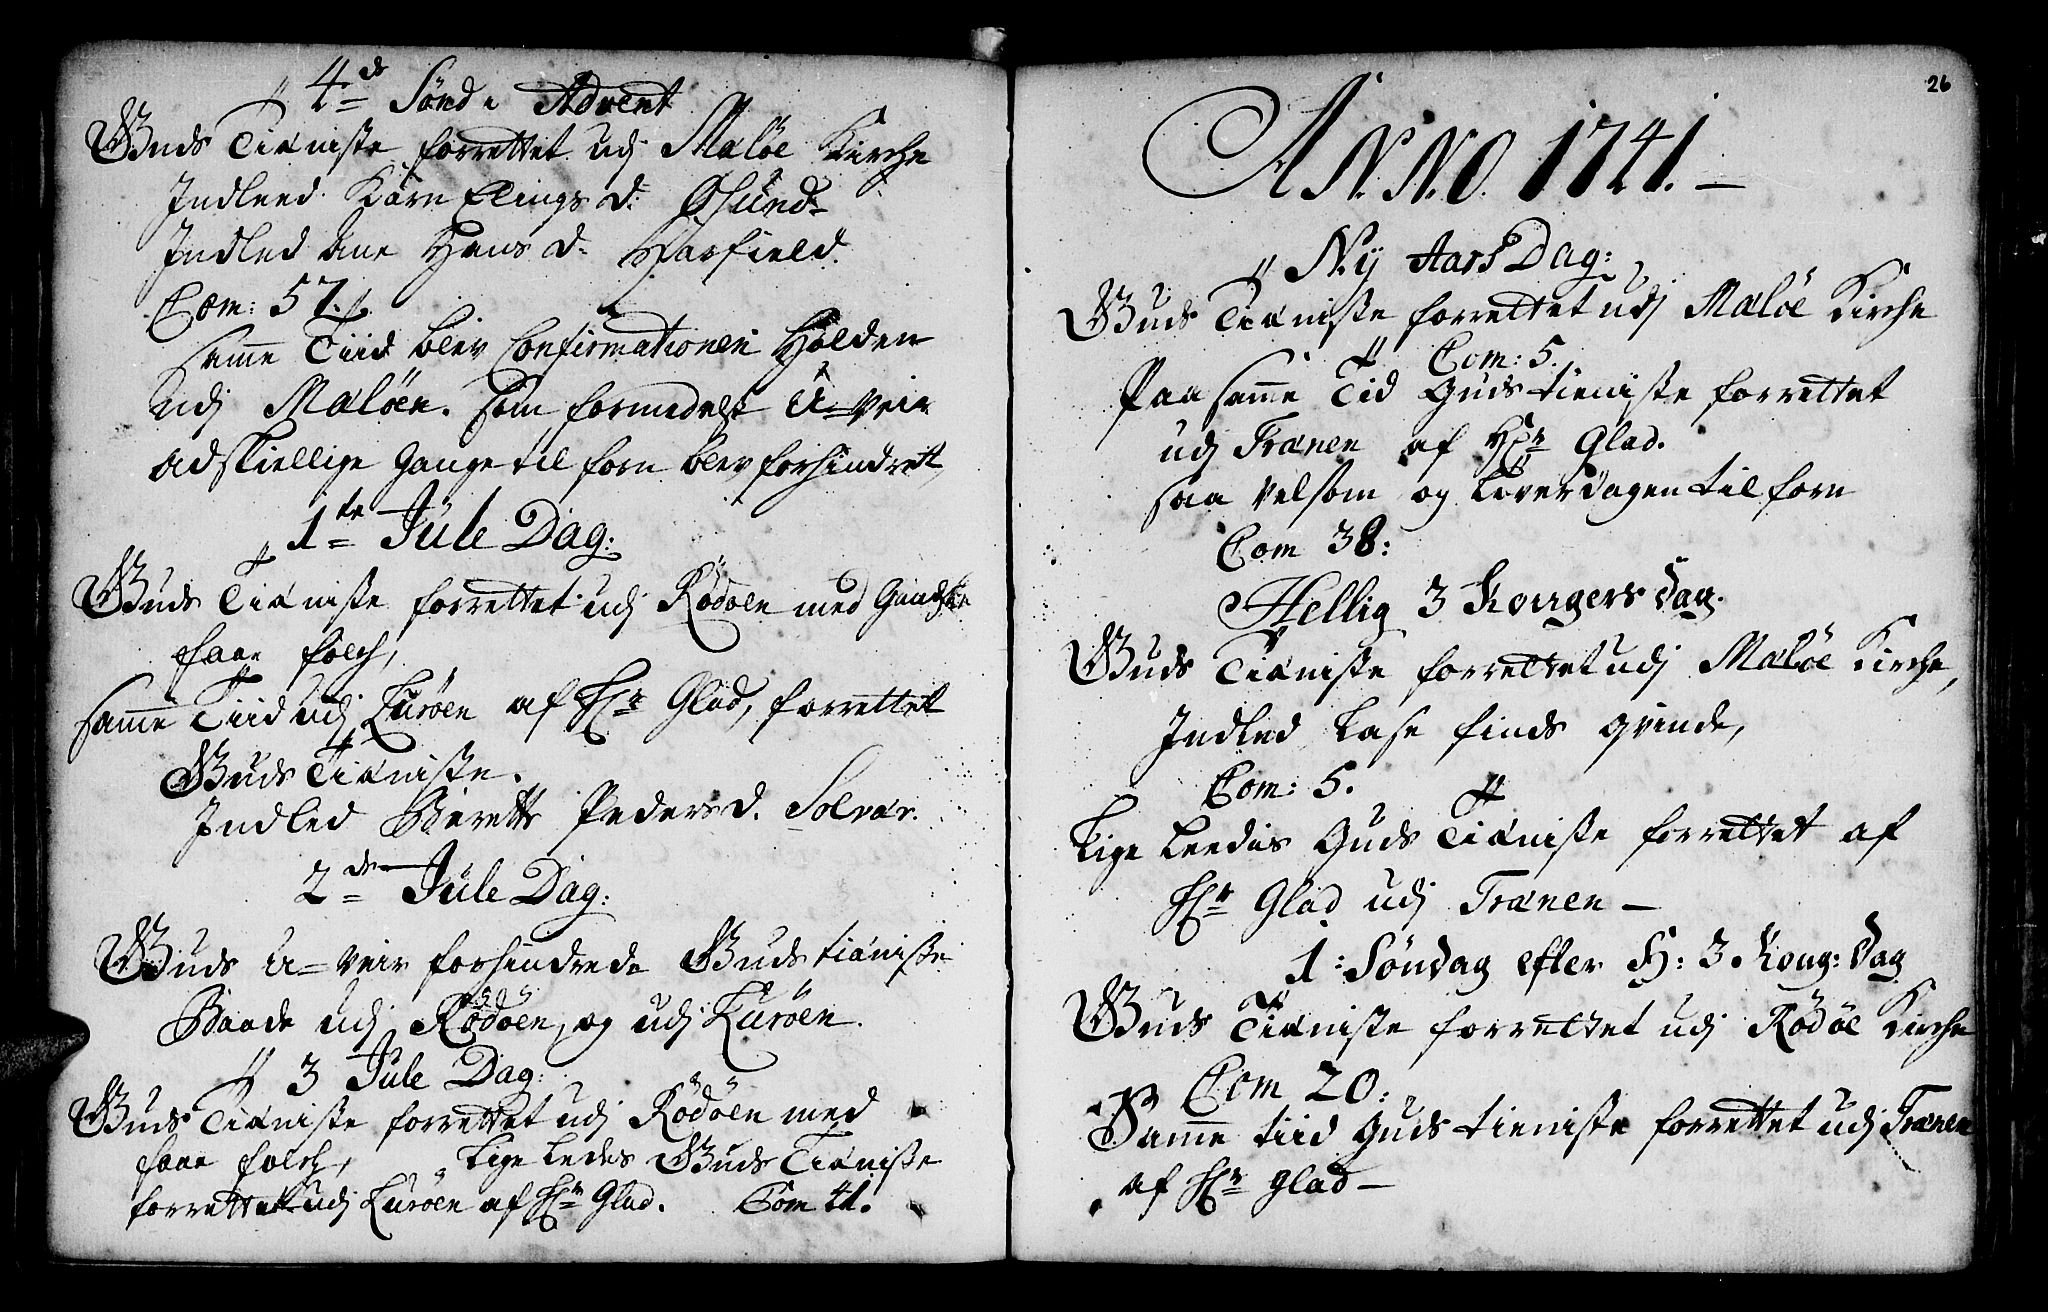 4de Sønd i Advent
Guds Tieniste forrettet udj Maløe Kirche
Indleed Karn Ellings d: Øsund
Indled Ane Hans d:
Com: 57.
samme Tiid blev Confirmationen Holden
udj Maløen. som formedelst U=veir
adskiellige Gange til forn blev forhindret
1te Jule Dag:
Guds Tieniste forrettet udj Rødøen med Gandske
faae folch,
samme Tiid udj Lurøen af Hr Glad, forrettet
Guds Tieniste.
Indled Beret Peders d. Solvær.
2de Jule Dag:
Guds U=veir forhindrede Guds tieniste
Baade udj Rødøen, og udj Lurøen.
3 Jule Dag:
Guds Tieniste forrettet udj Rødøen med
faae folch, Lige ledes Guds Tieniste
forrettet udj Lurøen af Hr Glad. Com 41.
26
ANNO 1741.
Ny Aars Dag:
Guds Tieniste forrettet udj Maløe Kirche
Com: 5.
Paa samme Tid Guds tieniste forrettet
udj Trænen af Hr Glad.
saa velsom og Løverdagen til forn
Com 38:
Hellig 3 Kongers Dag.
Guds Tieniste forrettet udj Maløe Kirche,
Indled Lase finds qvinde,
Com: 5.
Lige Leedes Guds Tieniste forrettet af
Hr Glad udj Trænen
1: Søndag efter H: 3 Kong: Dag
Guds Tieniste forrettet udj Rødøe Kirche
Com 20:
Samme tiid Guds tieniste forrettet udj Trænen
af Hr Glad